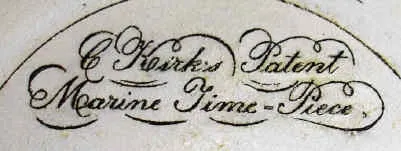 C Kirk's Patent
Marine Time-Piece.